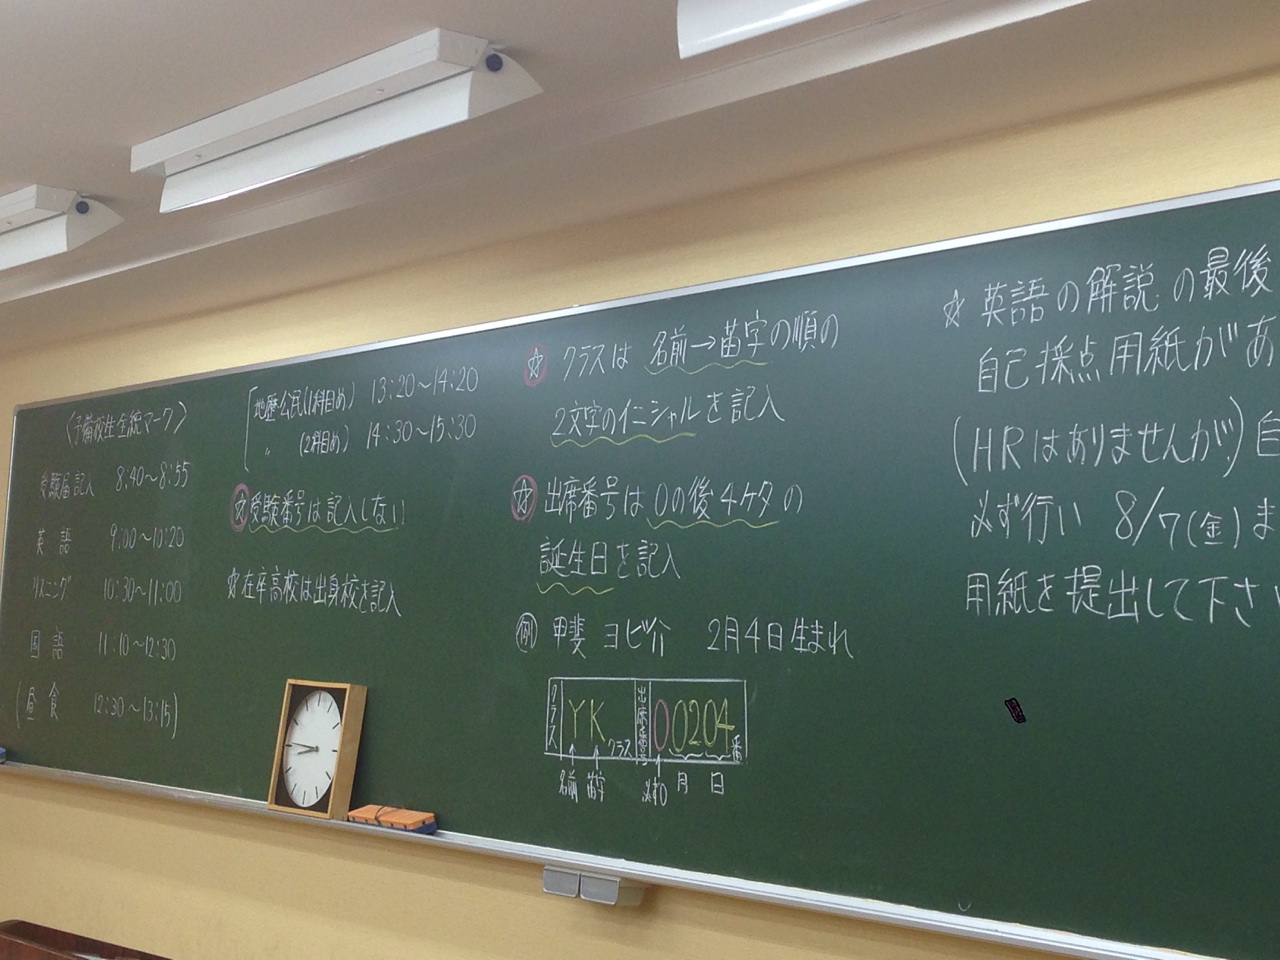 〈予備校生全統マーク〉
受験届記入 8:40〜8:55
英語 9:00〜10:20
リスニング 10:30〜11:00
国語 11:10〜12:30
(昼食 12:30〜13:15)
地歴公民(1科目め) 13:20〜14:20
〃 (2科目め) 14:30〜15:30
☆受験番号は記入しない
☆在卒高校は出身校を記入
☆ クラスは 名前→苗字の順の
2文字のイニシャルを記入
☆ 出席番号は0の後4ケタの
誕生日を記入
例 甲斐 ヨビ介 2月4日生まれ
クラス YK クラス 出席番号 00204番
名前 苗字 必ず0 月 日
☆ 英語の解説の最後
自己採点用紙があ
(HRはありませんが)自
必ず行い 8/7(金)ま
用紙を提出して下さい